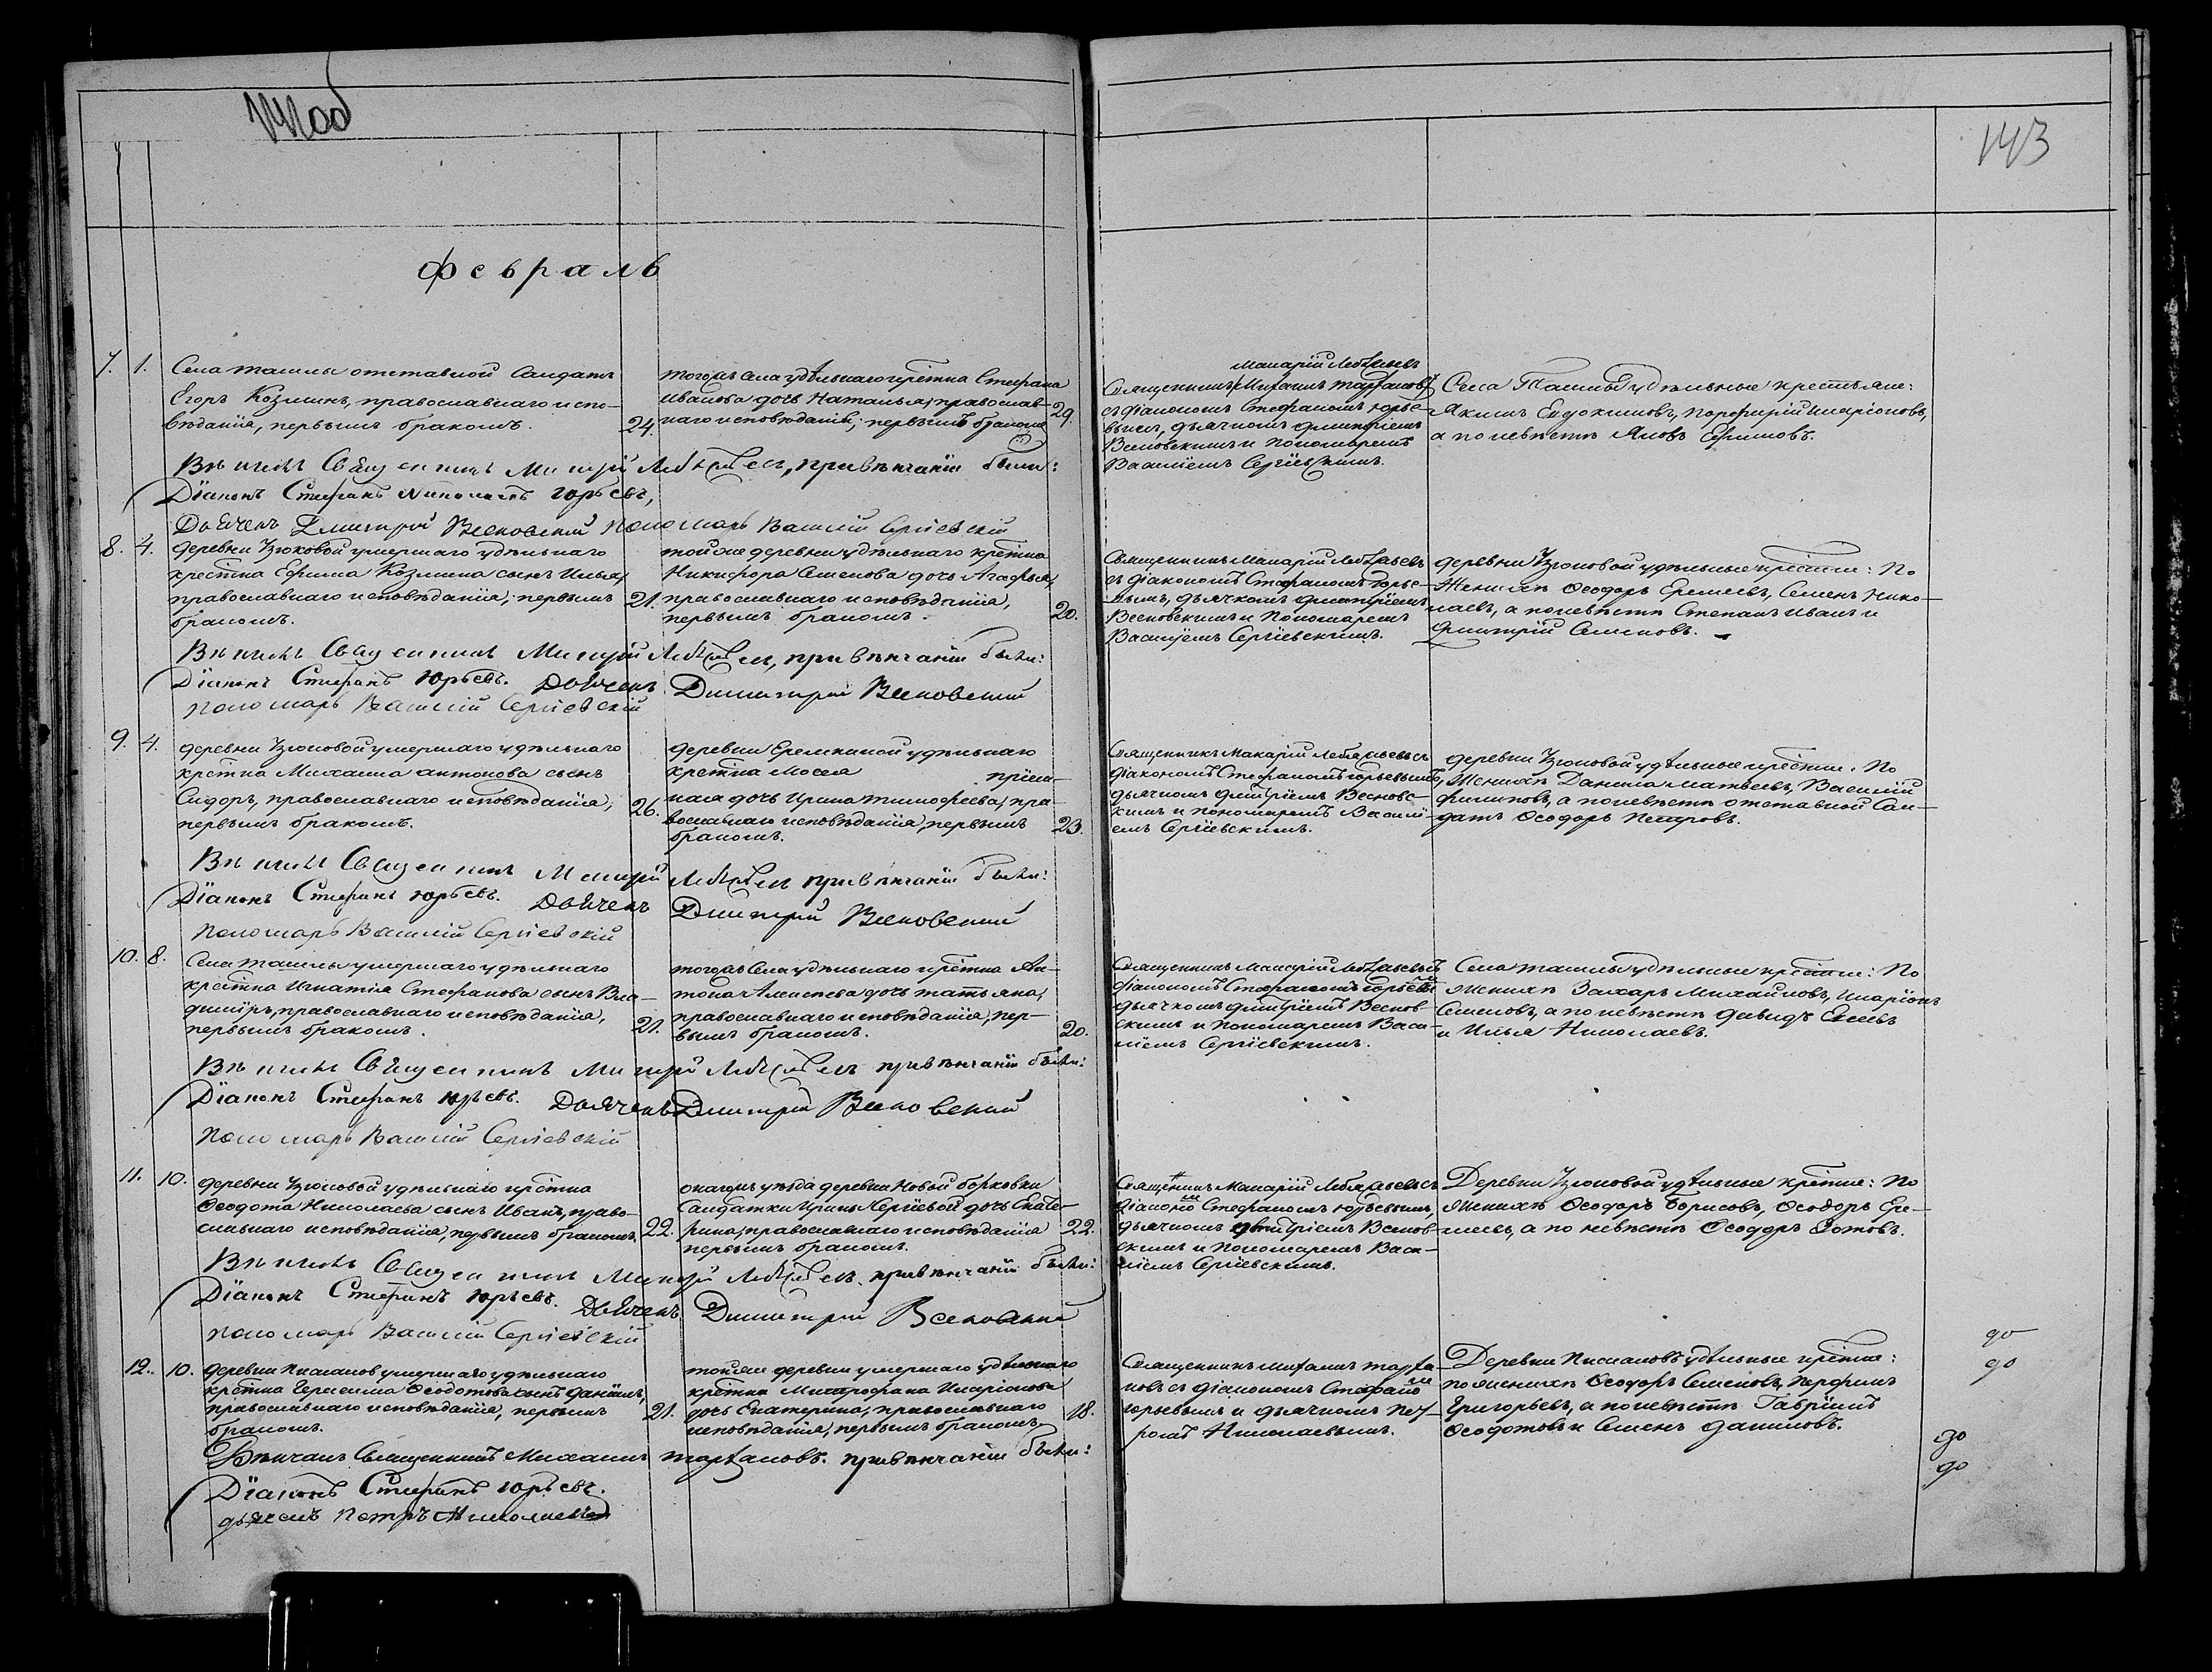 143
Февраль
7. 1. Села Ташлы отставной Солдатъ
Егоръ Козминъ, православнаго испо-
вѣданія, первымъ бракомъ.
24.
тогожъ села удѣльнаго крестна Стефана
Иванова дочь Наталья, православ-
наго исповѣданія, первымъ бракомъ
29.
Макарій
Священникъ Михаилъ
съ діакономъ Стефаномъ Юрье-
вымъ, дьячкомъ Димитріемъ
Весновскимъ и пономаремъ
Василіемъ Сергіевскимъ.
Села Ташлы удѣльные крестьяне:
Якимъ Евдокимовъ, Порфирій Иларіоновъ,
а по невѣстѣ Яковъ Ефимовъ.
Священникъ Макарій при вѣнчаніи были:
Діаконъ Стефанъ Юрьевъ,
Дьячекъ Димитрій Весновскій пономарь Василій Сергіевскій
8. 4. деревни Узюковой умершаго удѣльнаго
крестна Ефима Козмина сынъ Илья,
православнаго исповѣданія, первымъ
бракомъ.
21.
тойже деревни удѣльнаго крестна
Никифора Семенова дочь Агафья,
православнаго исповѣданія,
первымъ бракомъ.
20.
Священникъ Макарій
съ діакономъ Стефаномъ Юрье-
вымъ, дьячкомъ Димитріемъ
Весновскимъ и пономаремъ
Василіемъ Сергіевскимъ.
деревни Узюковой удѣльные крестне: По
Женихѣ Ѳеодоръ Еремеевъ, Семенъ Нико-
лаевъ, а по невѣстѣ Степанъ Иванъ и
Димитрій Семеновъ.
Священникъ Макарій при вѣнчаніи были:
Діаконъ Стефанъ Юрьевъ. Дьячекъ Димитрій Весновскій
пономарь Василій Сергіевскій
9. 4. деревни Узюковой умершаго удѣльнаго
крестна Михаила Антонова сынъ
Сидоръ, православнаго исповѣданія,
первымъ бракомъ.
26.
деревни Еремкиной удѣльнаго
крестна Мосея прием-
ная дочь Ирина Тимофеева, пра-
вославнаго исповѣданія, первымъ
бракомъ.
23.
Священникъ Макарій
діакономъ Стефаномъ Юрьевымъ,
дьячкомъ Димитріемъ Весновс-
кимъ и пономаремъ Василі-
емъ Сергіевскимъ.
деревни Узюковой удѣльные крестне. По
Женихѣ Данила Матвеевъ, Василій
Филиповъ, а по невѣстѣ отставной Сол-
датъ Ѳеодоръ Петровъ.
Священникъ Макарій при вѣнчаніи были:
Діаконъ Стефанъ Юрьевъ. Дьячекъ Димитрій Весновскій
пономарь Василій Сергіевскій
10. 8. Села Ташлы умершаго удѣльнаго
крестна Игнатія Стефанова сынъ Вла-
димиръ, православнаго исповѣданія,
первымъ бракомъ.
21.
тогожъ Села удѣльнаго крестна Ан-
тона Алексеева дочь Татьяна,
православнаго исповѣданія, пер-
вымъ бракомъ.
20.
Священникъ Макарій
діакономъ Стефаномъ Юрьевымъ
дьячкомъ Димитріемъ Веснов-
скимъ и пономаремъ Васи-
ліемъ Сергіевскимъ.
Села Ташлы удѣльные крестне: По
Женихѣ Захаръ Михайловъ, Иларіонъ
Семеновъ, а по невѣстѣ Давидъ
и Илья Николаевъ.
Священникъ Макарій при вѣнчаніи были:
Діаконъ Стефанъ Юрьевъ. Дьячекъ Димитрій Весновскій
Пономарь Василій Сергіевскій
11. 10. деревни Узюковой удѣльнаго крестна
Ѳеодота Николаева сынъ Иванъ, право-
славнаго исповѣданія, первымъ бракомъ.
22.
онагожъ уѣзда деревни Новой Борковки
Салдатки Ирины Сергіевой дочь Екате-
рина, православнаго исповѣданія
первымъ бракомъ.
22.
Священникъ Макарій
діакономъ Стефаномъ Юрьевымъ,
дьячкомъ Димитріемъ Веснов-
скимъ и пономаремъ Васи-
ліемъ Сергіевскимъ.
Деревни Узюковой удѣльные крестне: По
Женихѣ Ѳеодоръ Борисовъ, Ѳеодоръ Ере-
меевъ, а по невѣстѣ Ѳеодоръ Зотовъ.
Священникъ Макарій при вѣнчаніи были:
Діаконъ Стефанъ Юрьевъ. Дьячекъ Димитрій Весновскій
пономарь Василій Сергіевскій
12. 10. деревни умершаго удѣльнаго
крестна Герасима Ѳеодотова сынъ Даніилъ,
православнаго исповѣданія, первымъ
бракомъ.
21.
тойже деревни умершаго удѣльнаго
крестна Митрофана Иларіонова
дочь Екатерина, православнаго
исповѣданія, первымъ бракомъ
18.
Священникъ Михаилъ
съ діакономъ Стефаномъ
Юрьевымъ и дьячкомъ Пет-
ромъ Николаевымъ.
Деревни удѣльные крестне:
по женихѣ Ѳеодоръ Семеновъ, Перфилъ
Григорьевъ, а по невѣстѣ Гавріилъ
Ѳеодотовъ и Семенъ Даниловъ.
Вѣнчалъ Священникъ Михаилъ при вѣнчаніи были:
Діаконъ Стефанъ Юрьевъ.
дьячекъ Петръ Николаевъ